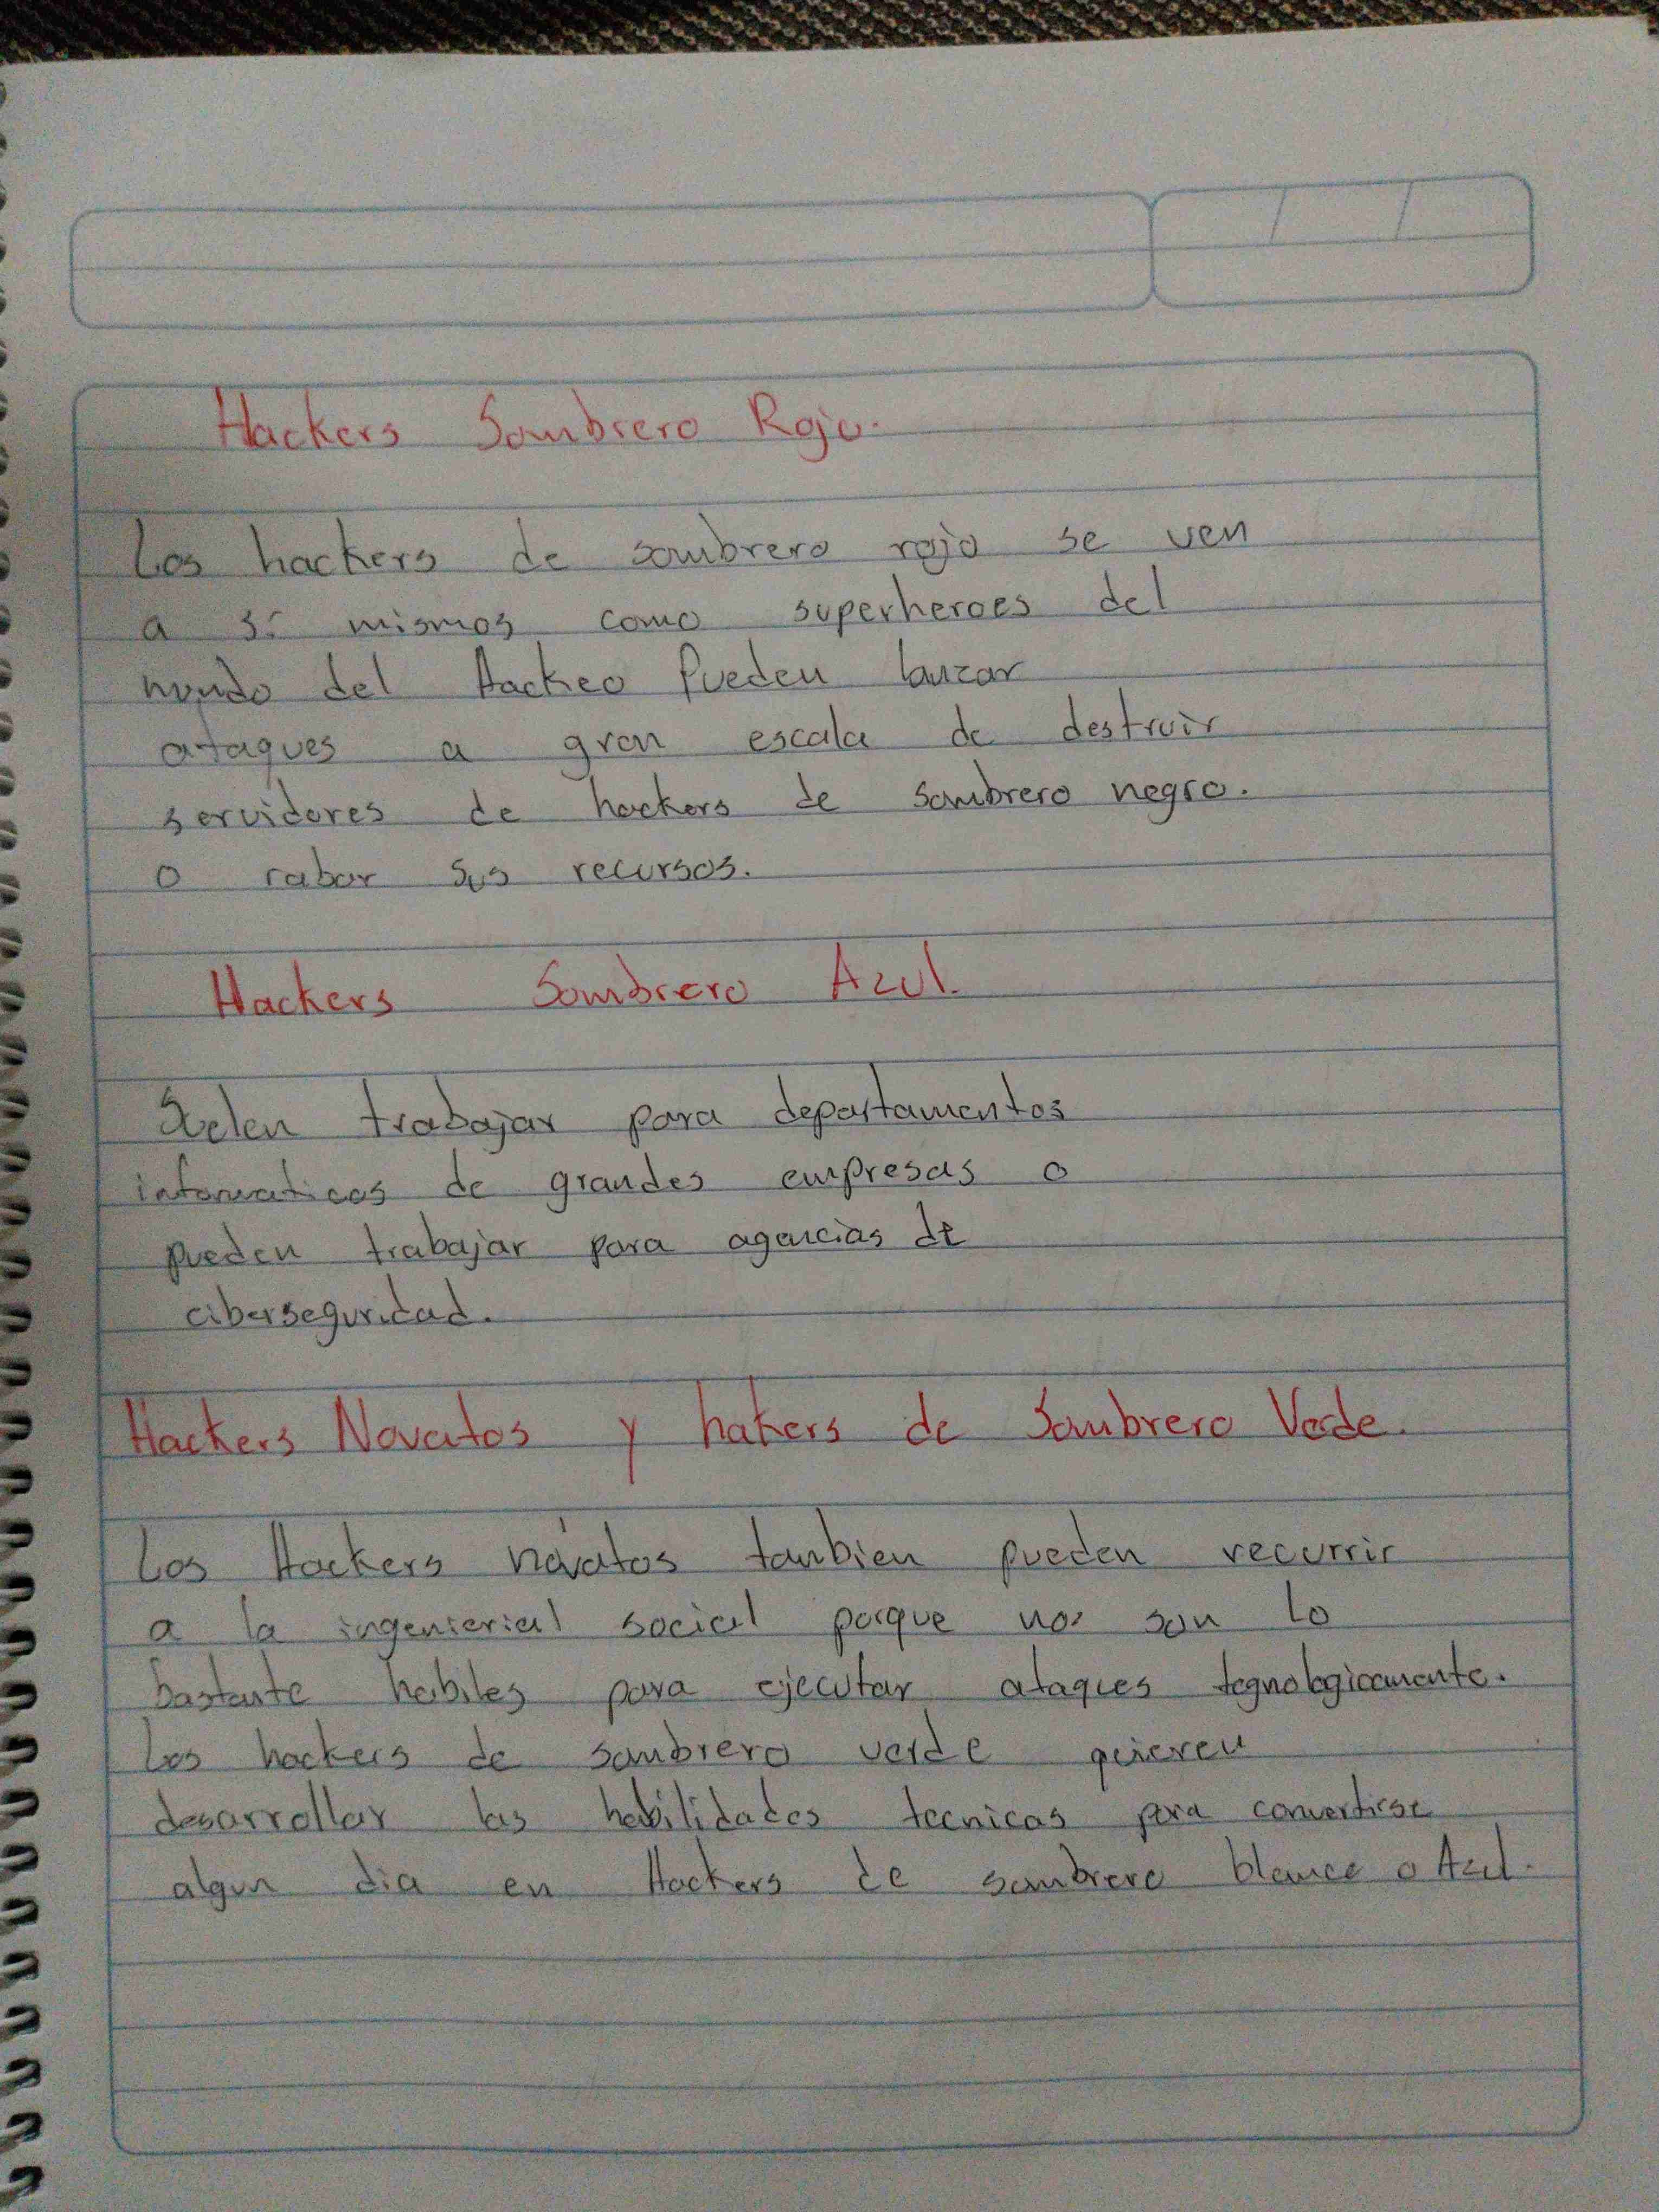 Hackers Sombrero Rojo.
Los hackers de sombrero rojo se ven
a sí mismos como superheroes del
mundo del Hackeo Pueden lanzar
ataques a gran escala de destruir
servidores de hackers de sombrero negro.
o rabar sus recursos.
Hackers Sombrero Azul.
Suelen trabajar para departamentos
informaticos de grandes empresas o
pueden trabajar para agencias de
ciberseguridad.
Hackers Novatos y hakers de Sombrero Verde.
Los Hackers novatos tanbien pueden recurrir
a la ingenierial social porque nos son lo
bastante habiles para ejecutar ataques tegnologicamente.
Los hackers de sombrero verde quieren
desarrollar las habilidades tecnicas para convertirse
algun dia en Hackers de sombrero blanco o Azul.